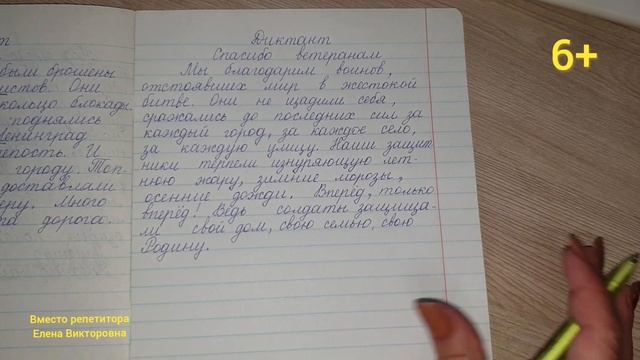 т
были брошены
истов. Они
кольцо блокады
поднялись
Ленинград
епость. И
городу. Топ-
доставляли
еру. Много
та дорога.
Диктант
Спасибо ветеранам
Мы благодарим воинов,
отстоявших мир в жестокой
битве. Они не щадили себя,
сражались до последних сил за
каждый город, за каждое село,
за каждую улицу. Наши защит
ники терпели изнуряющую лет-
нюю жару, зимние морозы,
осенние дожди. Вперёд, только
вперёд! Ведь солдаты защища-
ли свой дом, свою семью, свою
Родину.
6+
Вместо репетитора
Елена Викторовна